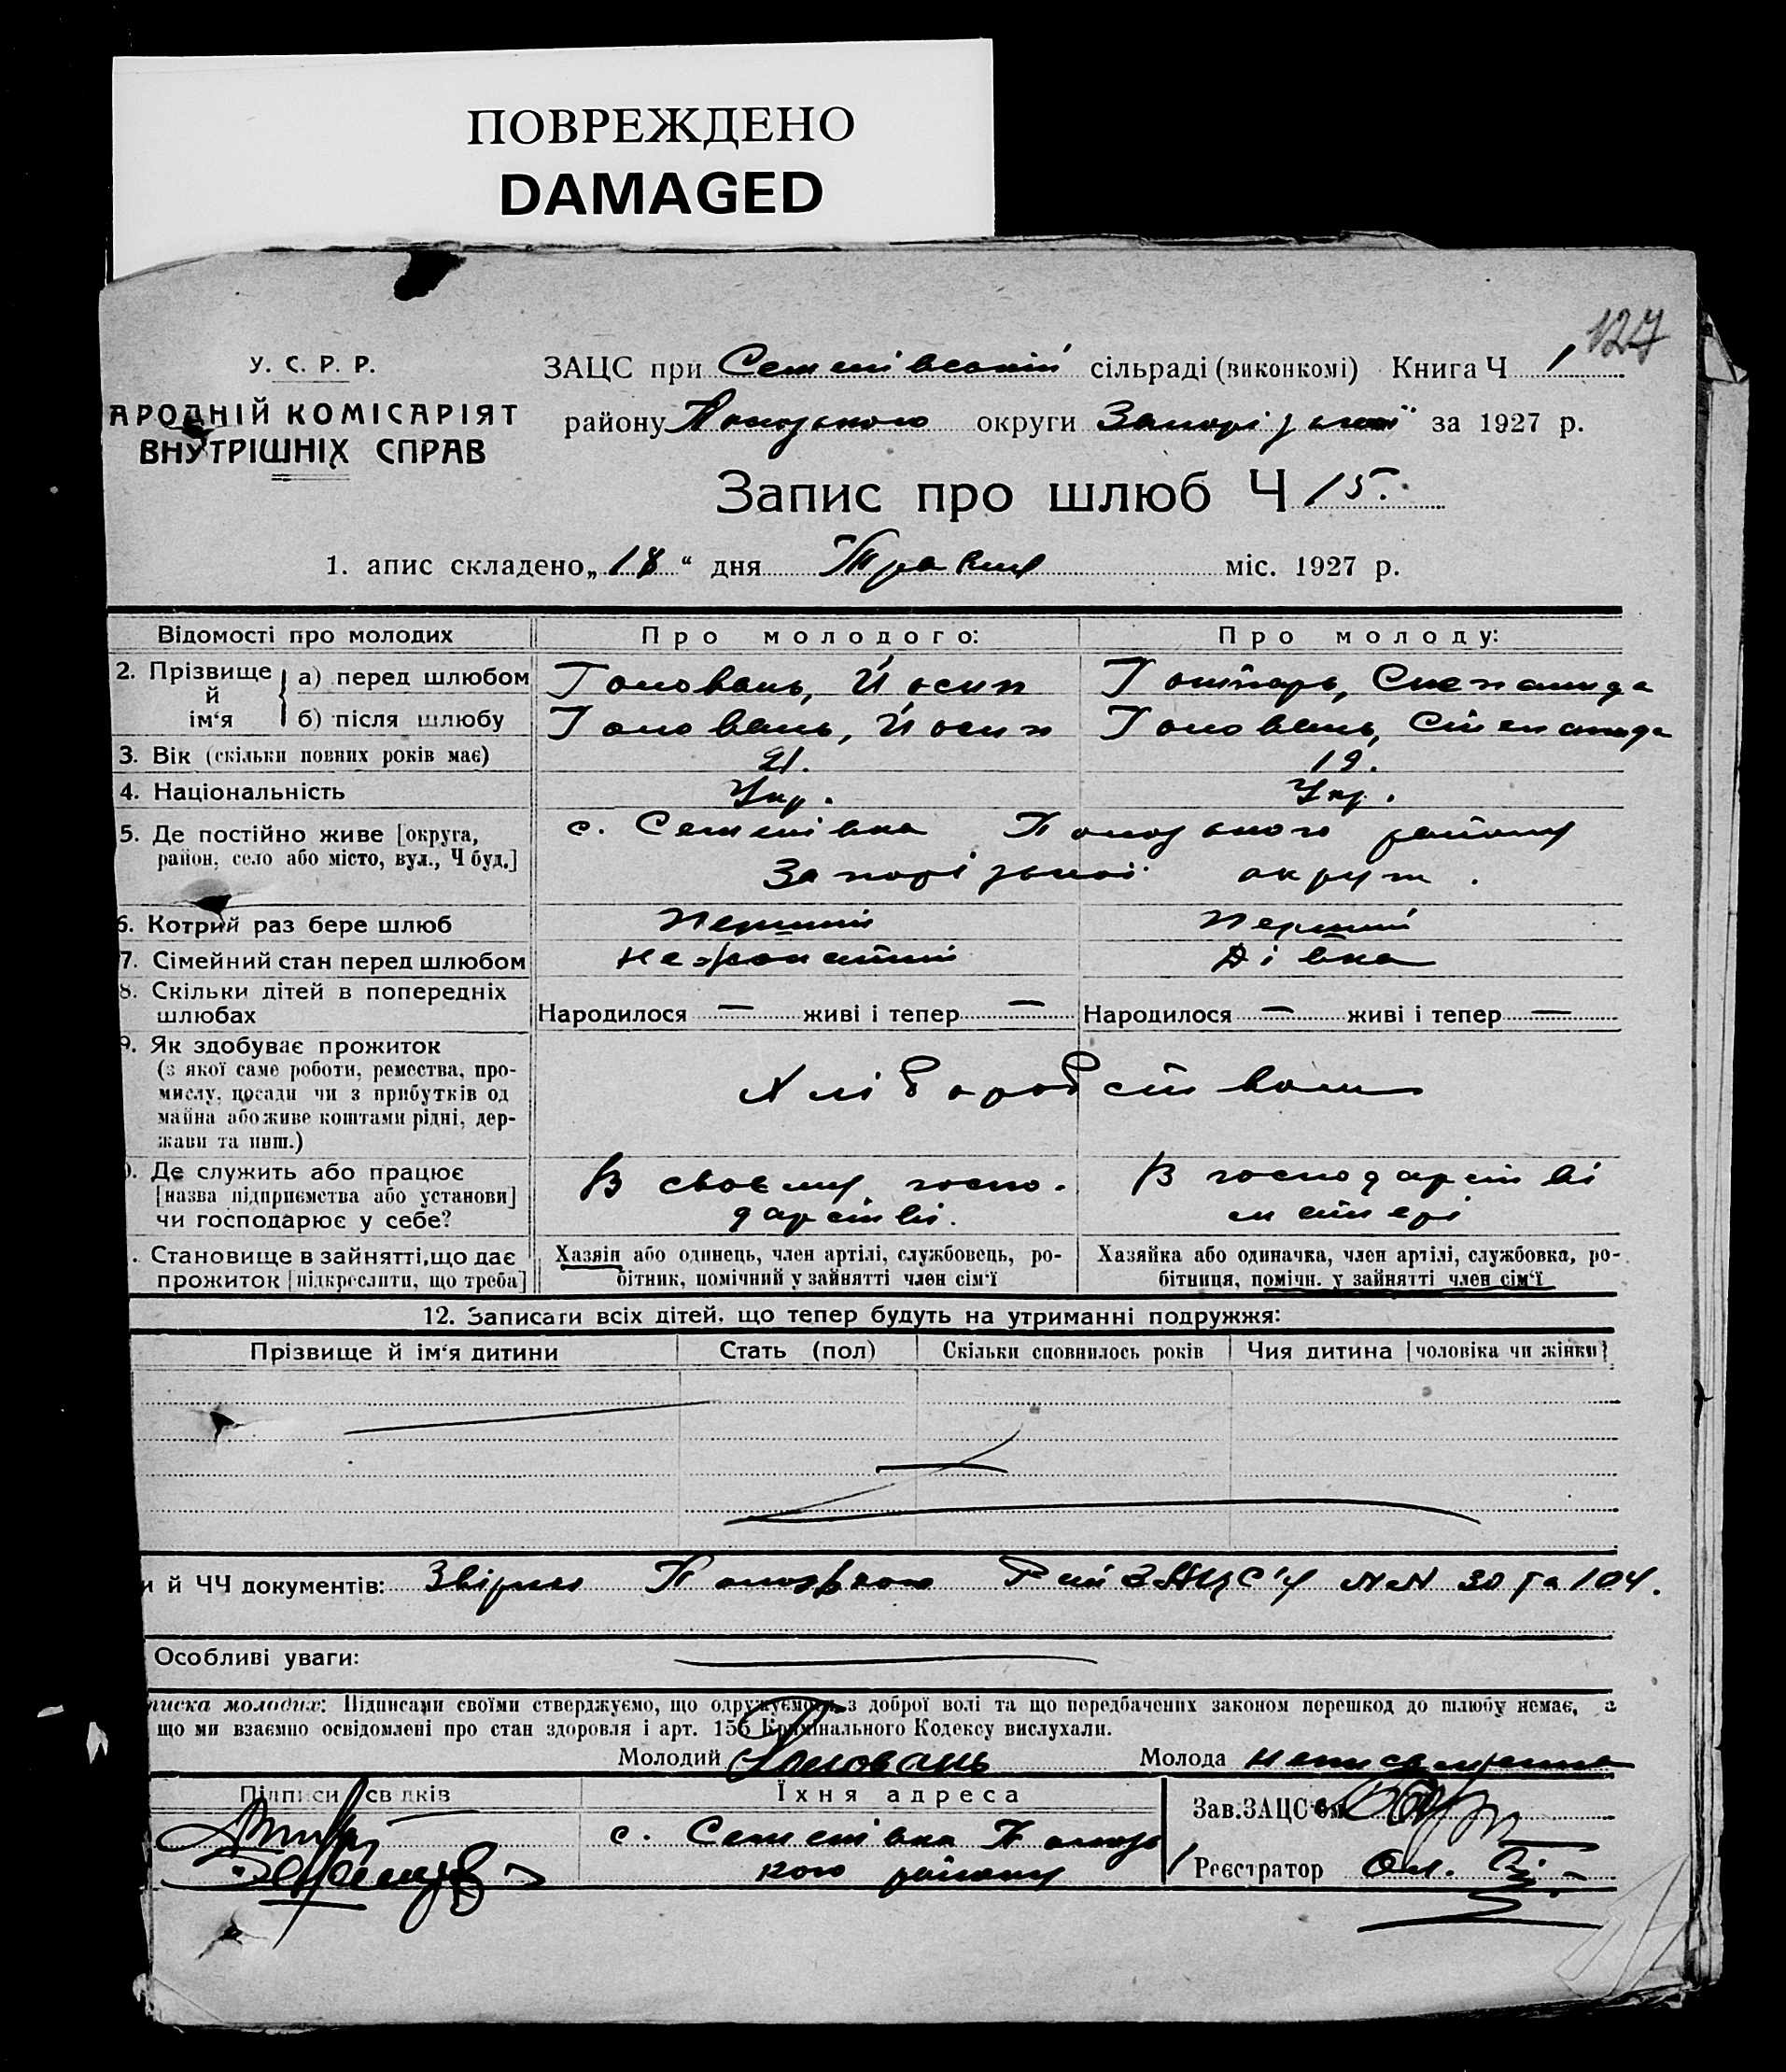 ПОВРЕЖДЕНО
DAMAGED
127
У. С. Р. Р.
АРОДНІЙ КОМІСАРІЯТ
ВНУТРІШНІХ СПРАВ
ЗАЦС при Семенівській сільраді (виконкомі) Книга Ч 1
району Пологського округи Запорізької за 1927 р.
Запис про шлюб Ч 15.
1. апис складено „18“ дня Травня міс. 1927 р.
Відомості про молодих Про молодого: Про молоду:
2. Прізвище й ім‘я а) перед шлюбом Головань, Йосип Гонтарь, Степанида
б) після шлюбу Головань, Йосип Головань, Степанида
3. Вік (скільки повних років має) 21. 19.
4. Національність Укр. Укр.
5. Де постійно живе [округа, с. Семенівка Пологського району
район, село або місто, вул., Ч буд.] Запорізької округи.
6. Котрий раз бере шлюб Перший Перший
7. Сімейний стан перед шлюбом Нежонатий Дівка
8. Скільки дітей в попередніх
шлюбах Народилося — живі і тепер — Народилося — живі і тепер —
9. Як здобуває прожиток
(з якої саме роботи, ремества, про-
мислу, посади чи з прибутків од Хліборобством
майна або живе коштами рідні, дер-
жави та инш.)
0. Де служить або працює В своєму госпо- В господарстві
[назва підприємства або установи] дарстві. матері
чи господарює у себе?
. Становище в зайнятті, що дає Хазяїн або одинець, член артілі, службовець, ро- Хазяйка або одиначка, член артілі, службовка, ро-
прожиток [підкреслити, що треба] бітник, помічний у зайнятті член сім‘ї бітниця, помічн. у зайнятті член сім‘ї
12. Записати всіх дітей, що тепер будуть на утриманні подружжя:
Прізвище й ім‘я дитини Стать (пол) Скільки сповнилось років Чия дитина [чоловіка чи жінки]
и й ЧЧ документів: РайЗАЦС'у №№ 30 та 104.
Особливі уваги:
писка молодих: Підписами своїми стверджуємо, що одружуємось з доброї волі та що передбачених законом перешкод до шлюбу немає, а
що ми взаємно освідомлені про стан здоровля і арт. 156 Кримінального Кодексу вислухали.
Молодий Головань Молода неписьменна
Підписи свідків Їхня адреса Зав. ЗАЦС‘ом
с. Семенівка Пологсь
кого району Реєстратор